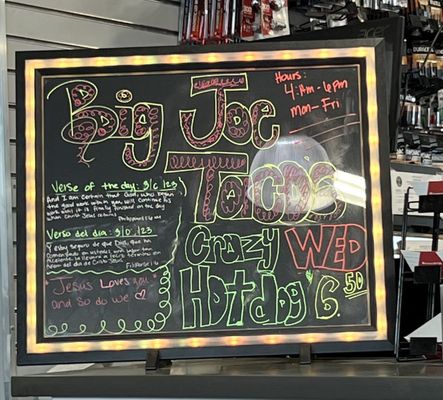 Big Joe
Tacos
Hours:
4:AM-6PM
Mon-Fri
Verse of the day: 3/6/23
And I am certain that God, who began
the good work within you, will continue his
work until it is finally finished on the day
when Christ Jesus returns.
Philippians 1:6
Verso del dia: 3/6/23
Y estoy seguro de que Dios, que ha
Crazy WED
Hotdog 6.50
Jesus Loves you
and so do we